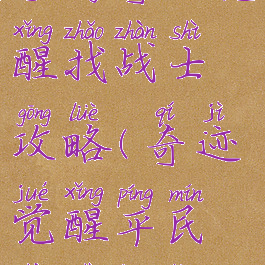 xǐng zhǎo zhàn shì
醒找战士
gōng lüè qí jì
攻略(奇迹
jué xǐng píng mín
觉醒平民